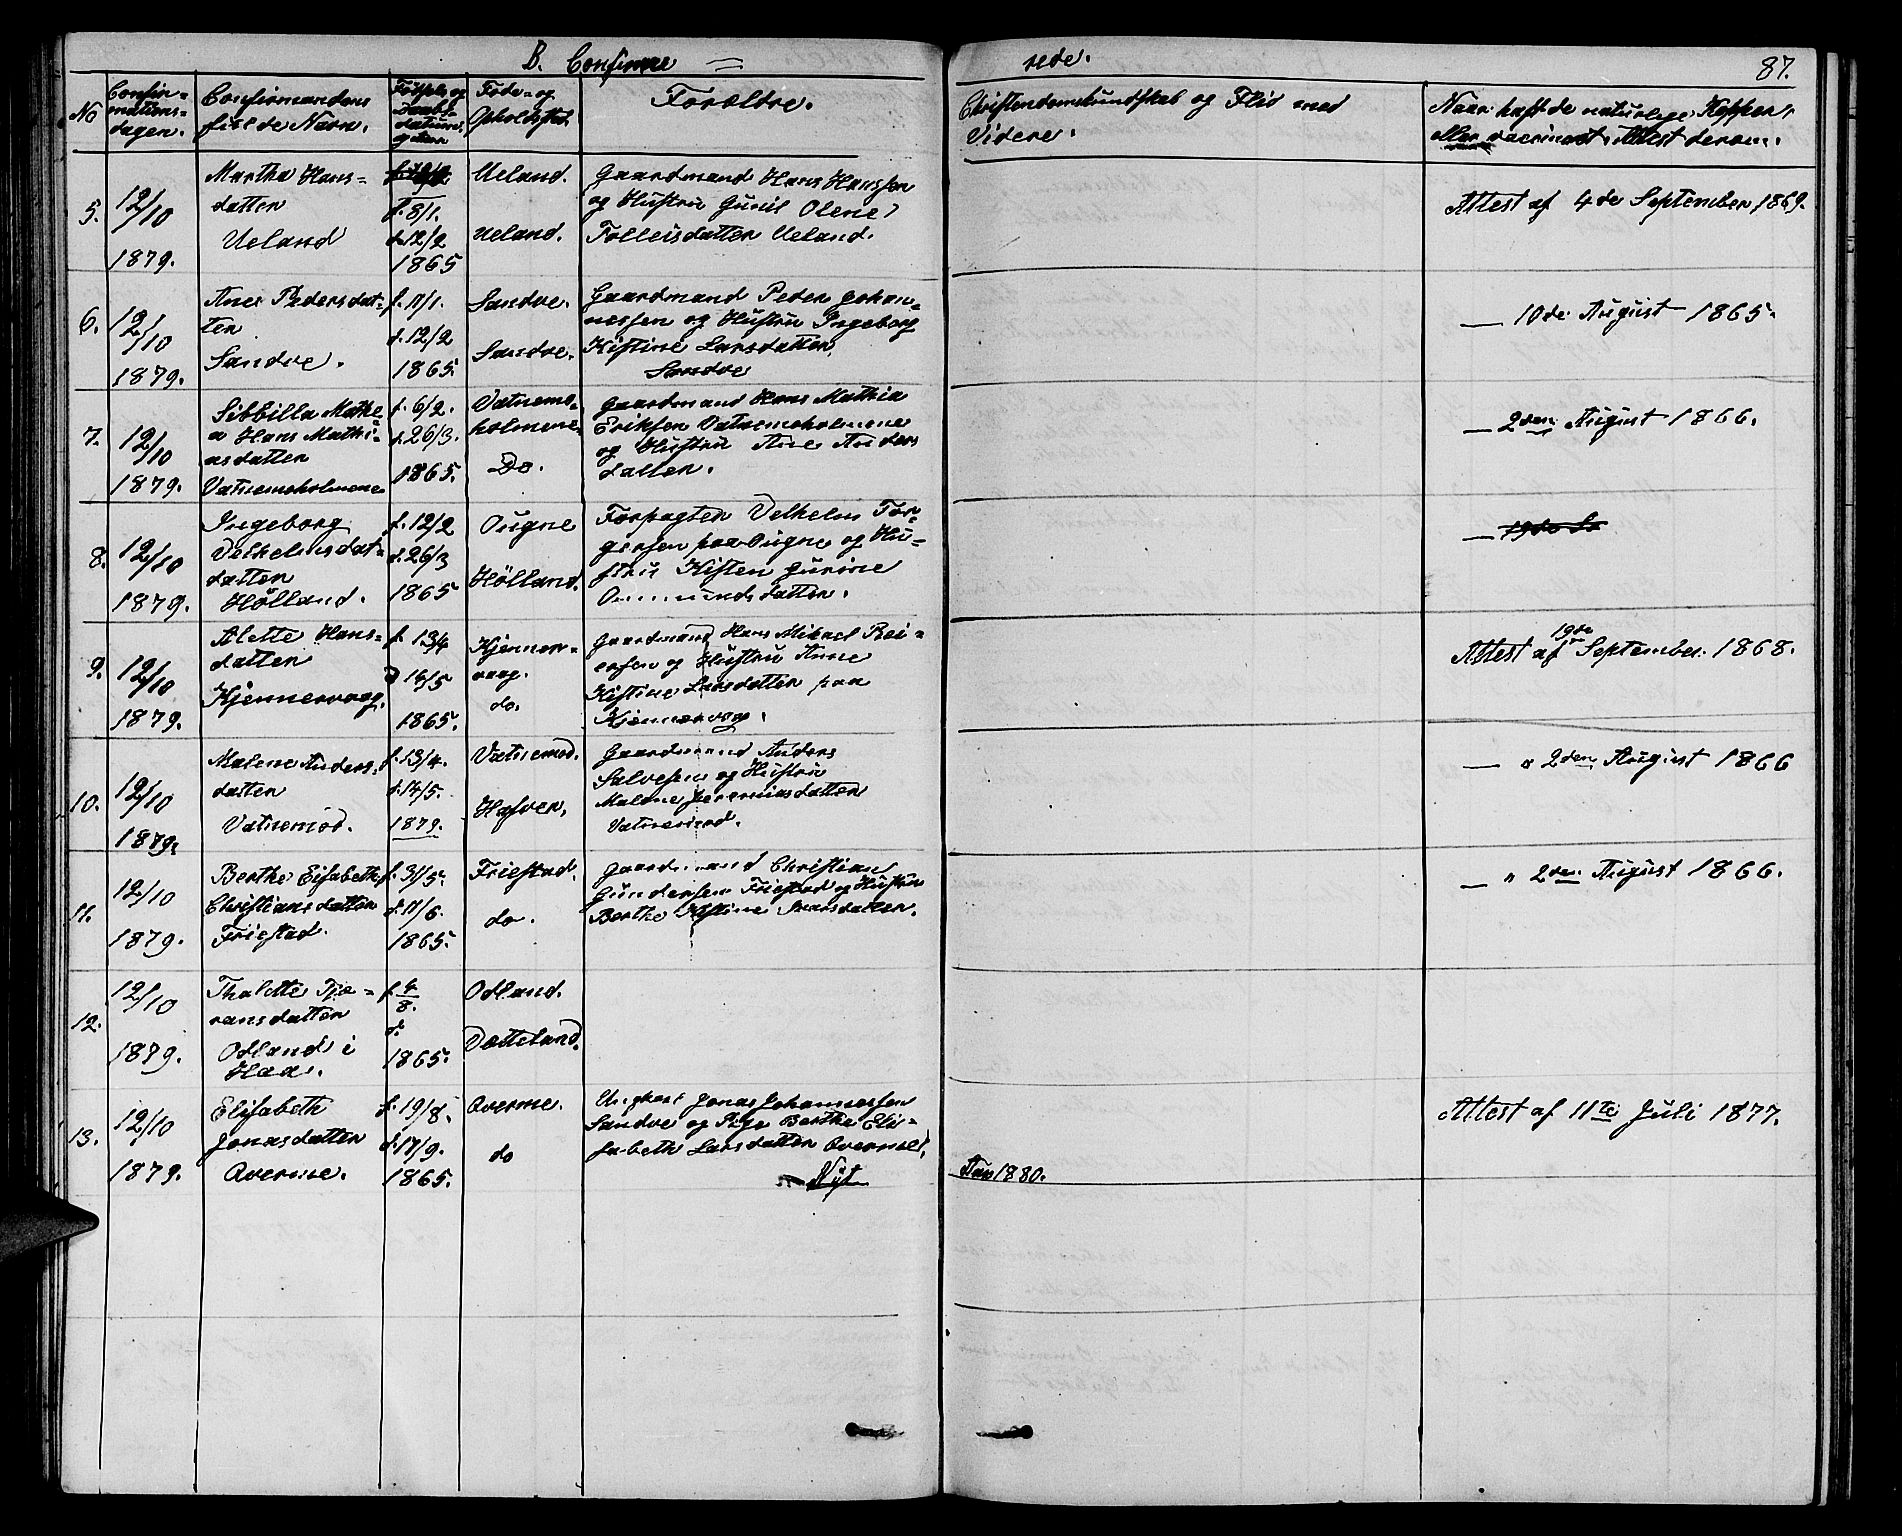 B. Confirme =
rede.
87.
No
Confir=
mations=
dagen.
Confirmandens
fulde Navn.
Fødsels og
Daabs=
datum
Føde= og
Opholdsted.
Forældre.
Christendomskundskab og Flid med
Videre.
Naar haft de naturlige Kopper,
eller vaccineret, Attest derom.
5.
12/10
1879.
Martha Hans=
datter
Ueland
f. 8/1.
d. 12/2
1865
Ueland.
Ueland.
Gaardmand Hans Hanssen
og Hustru Gunil Olene
Tolleisdatter Ueland.
Attest af 4de September 1869.
6.
12/10
1879.
Ane Pedersdat=
ter
Sandve.
f. 11/1.
d. 12/2
1865.
Sandve.
Sandve.
Gaardmand Peder Johan=
nessen og Hustru Ingeborg
Kistine Larsdatter
Sandve
— 10de August 1865.
7.
12/10
1879.
Sibbilla Mathe
a Hans Mathi=
asdatter
Vatnemoholmene
f. 6/2.
d. 26/3.
1865.
Vatnemo=
holmene
Do.
Gaardmand Hans Mathia
Eriksen Vatnemoholmene
og Hustru Ane Anders
datter.
— 2den August 1866.
8.
12/10
1879.
Ingeborg
Velhelmsdat=
datter
Hölland.
f. 12/2
d. 26/3
1865
Ougne
Hölland.
Forpagter Velhelm Tor=
gersen paa Ougne og Hu=
stru Kisten Gurine
Ommundsdatter.
— 19de Se
9.
12/10
1879.
Alette Hans=
datter
Kjennervaag.
f. 13/4
D 14/5
1865.
Kjenner=
vaag.
do.
Gaardmand Hans Mikael Rei=
ersen og Hustru Anne
Kistine Larsdatter paa
Kjennervaag.
Attest af 19de September 1868.
10.
12/10
1879.
Malene Anders=
datter
Vatnemod.
f. 13/4.
d. 14/5.
1879.
Vatnemod.
Hafven.
Gaardmand Anders
Salvesen og Hustru
Malene Jeremiasdatter
Vatnemod.
— " 2den August 1866
11.
12/10
1879.
Berthe Elisabeth
Christiansdatter
Friestad.
f. 31/5.
d. 11/6.
1865.
Friestad.
do.
Gaardmand Christian
Gundersen Friestad og Hustru
Berthe Kistine Ivarsdatter.
— " 2den August 1866.
12.
12/10
1879.
Thalette Tjø=
ransdatter
Odland i
Haa.
f. 4/8.
d.
1865.
Odland.
Dætteland.
13.
12/10
1879.
Elisabeth
Jonasdatter
Qverme.
f. 19/8.
d. 17/9.
1865.
Qverme.
do
Ungkarl Jonas Johannessen
Sandve og Pige Berthe Eli=
sabeth Larsdatter Qverme.
Attest af 11te Juli 1877.
— Nyt
Aar 1880.